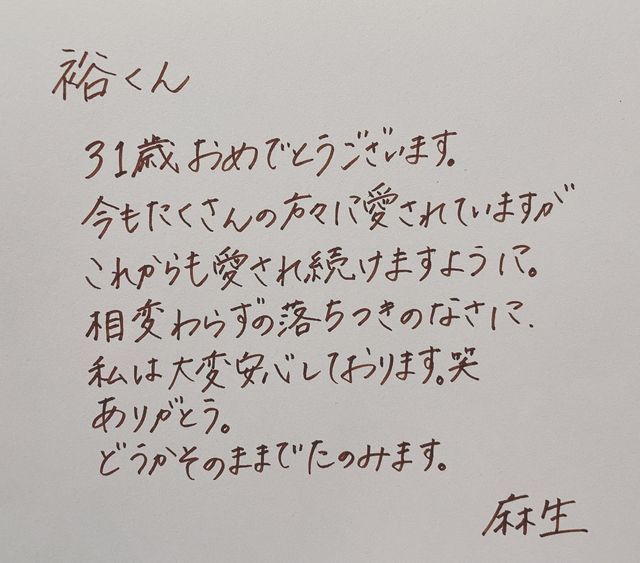 裕くん
31歳おめでとうございます。
今もたくさんの方々に愛されていますが
これからも愛され続けますように。
相変わらずの落ちつきのなさに、
私は大変安心しております。笑
ありがとう。
どうかそのままでたのみます。
麻生